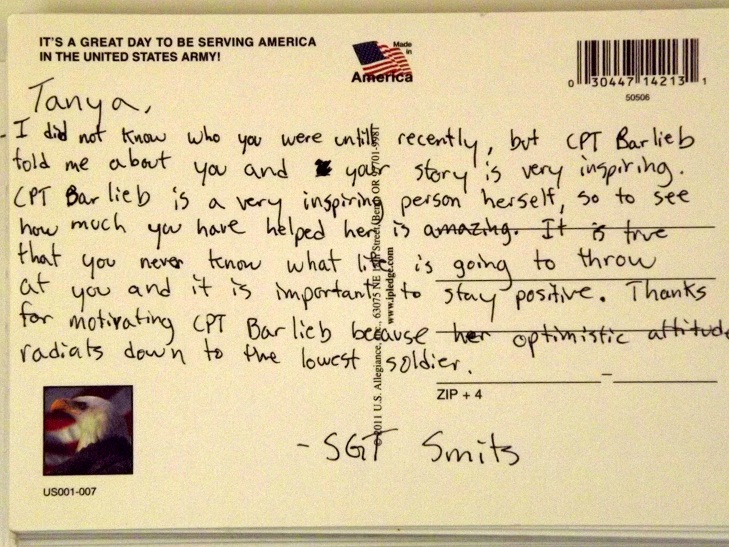 IT'S A GREAT DAY TO BE SERVING AMERICA
IN THE UNITED STATES ARMY!
Made
in
America
0 30447 14213 1
50506
Tanya,
I did not know who you were untill recently, but CPT Barlieb
told me about you and your story is very inspiring.
CPT Barlieb is a very inspiring person herself, so to see
how much you have helped her is amazing. It is true
that you never know what life is going to throw
at you and it is important to stay positive. Thanks
for motivating CPT Barlieb because her optimistic attitude
radiats down to the lowest soldier.
- SGT Smits
© 2011 U.S. Allegiance, Inc., 63075 NE Street, Bend OR 97701-9981
www.ipledge.com
ZIP + 4
US001-007